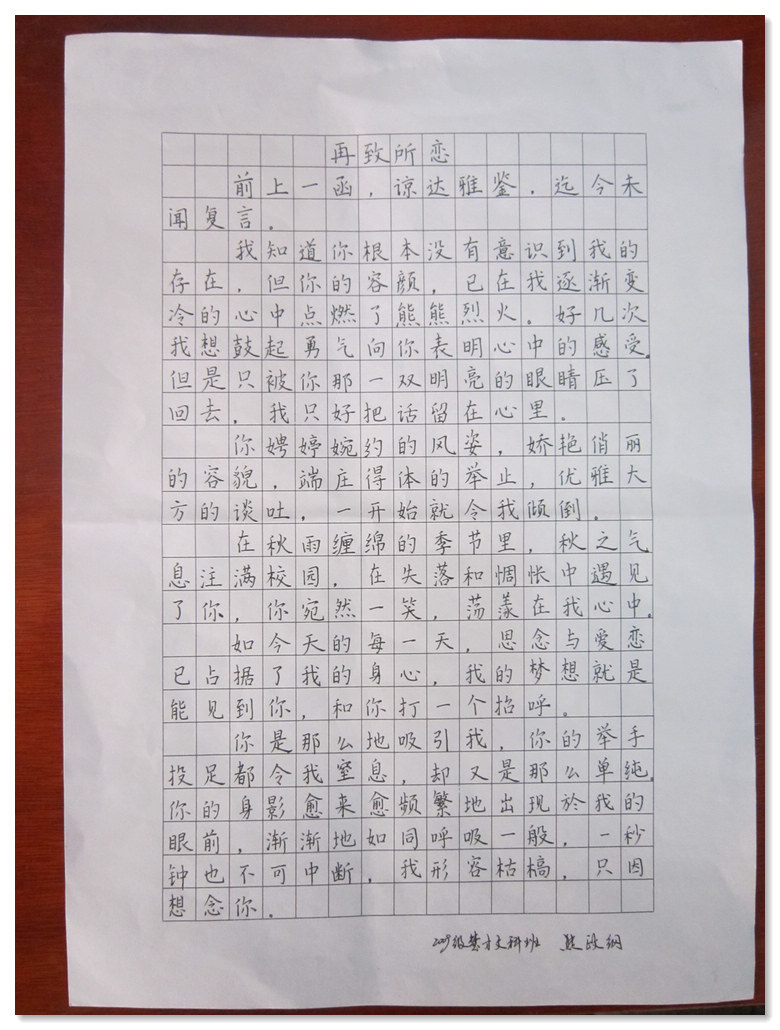 再致所恋
前上一函，谅达雅鉴，迄今未
闻复言。
我知道你根本没有意识到我的
存在，但你的容颜，已在我逐渐变
冷的心中点燃了熊熊烈火。好几次
我想鼓起勇气向你表明心中的感受，
但是只被你那一双明亮的眼睛压了
回去，我只好把话留在心里。
你娉婷婉约的风姿，娇艳俏丽
的容貌，端庄得体的举止，优雅大
方的谈吐，一开始就令我倾倒。
在秋雨缠绵的季节里，秋之气
息注满校园，在失落和惆怅中遇见
了你，你宛然一笑，荡漾在我心中。
如今天的每一天，思念与爱恋
已占据了我的身心，我的梦想就是
能见到你，和你打一个招呼。
你是那么地吸引我，你的举手
投足都令我窒息，却又是那么单纯。
你的身影愈来愈频繁地出现於我的
眼前，渐渐地如同呼吸一般，一秒
钟也不可中断，我形容枯槁，只因
想念你。
2009级楚才文科班